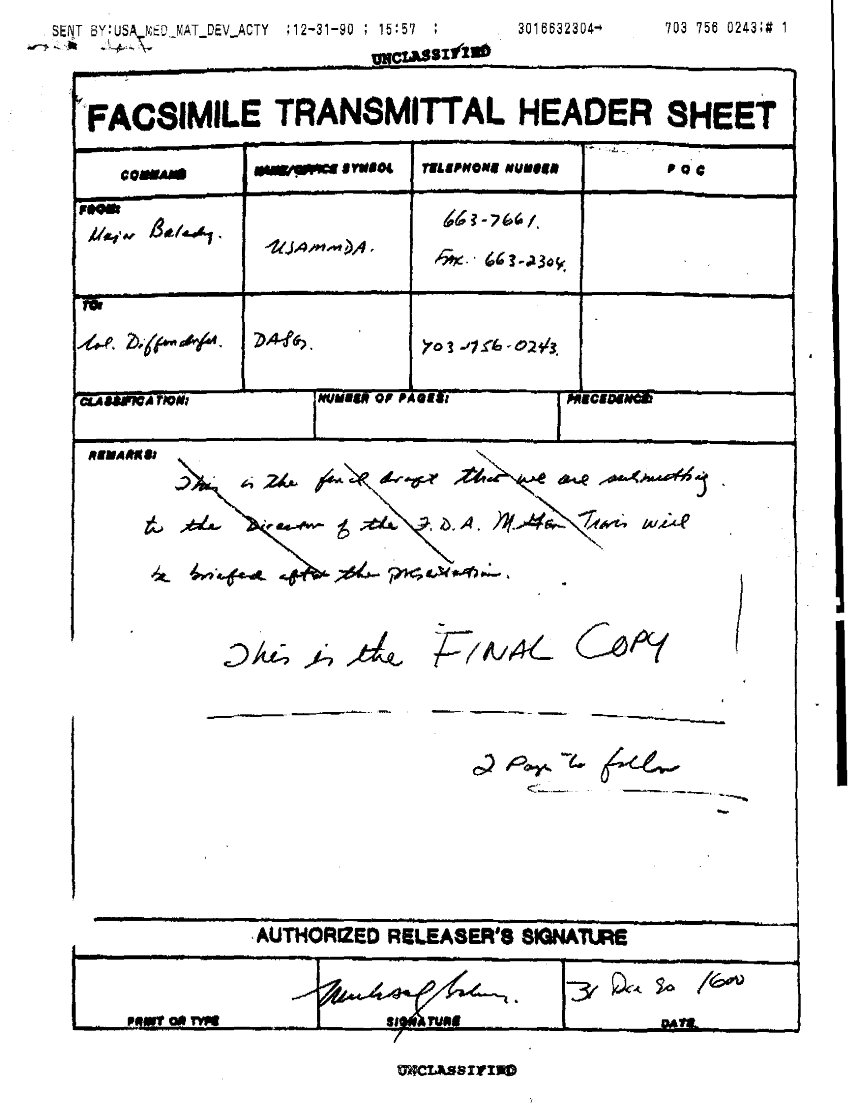 SENT BY:USA_MED_MAT_DEV_ACTY ;12-31-90 ; 15:57 ; 3016632304→ 703 756 0243;# 1
UNCLASSIFIED
FACSIMILE TRANSMITTAL HEADER SHEET
COMMAND NAME/OFFICE SYMBOL TELEPHONE NUMBER P O C
FROM:
Major Balady. USAMMDA. 663-7661.
Fax. 663-2304.
TO:
Col. Diffenderfer. DASG. 703-756-0243.
CLASSIFICATION: NUMBER OF PAGES: PRECEDENCE:
REMARKS:
This is the final draft that we are submitting.
to the Director of the F.D.A. Travis will
be briefed after the presentation.
This is the FINAL COPY
2 Page to follow
AUTHORIZED RELEASER'S SIGNATURE
31 Dec 90 1600
PRINT OR TYPE SIGNATURE DATE
UNCLASSIFIED